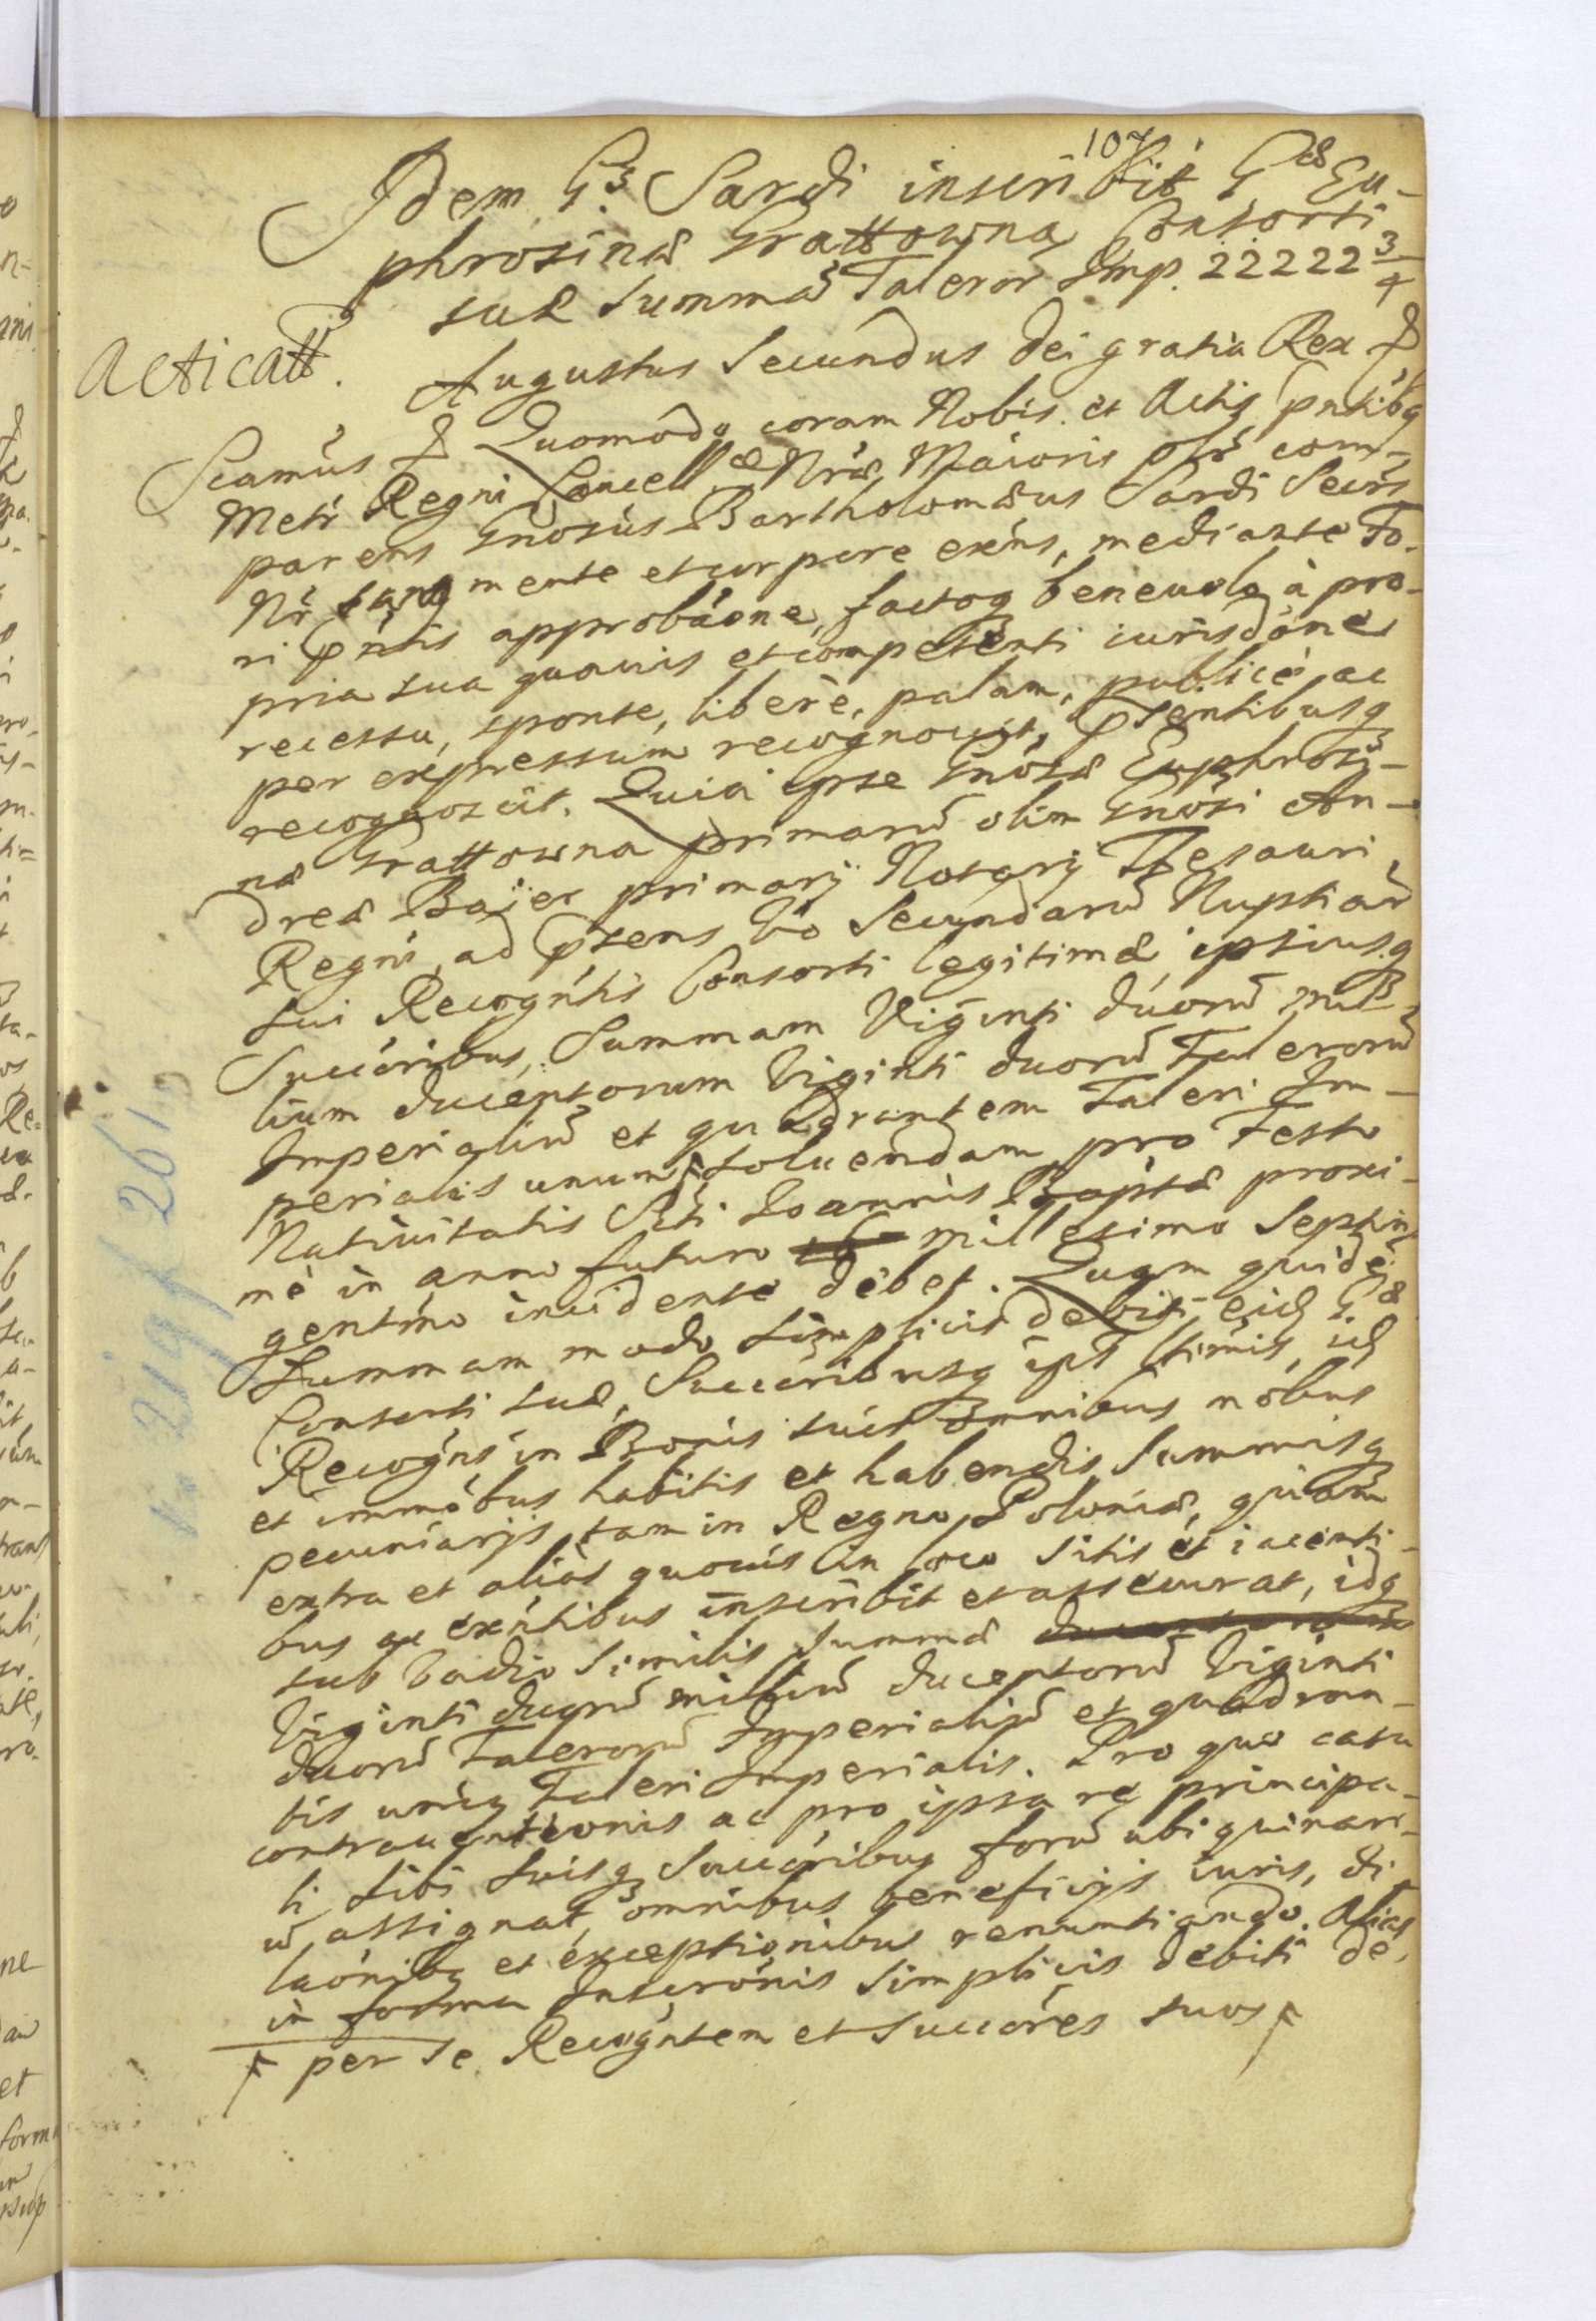 107
Idem G. Sardi inscribit Gae Eu-
phrosinae Grattowna Consorti
suae summã Taleror Imp. 22222 3/4
Acticatt.
Augustus Secundus Dei gratia Rex
Scamus Quomodo coram Nobis et Actis pntibq
Metr Regni Cancell ae Nrae Maioris plr com-
parens Gnosus Bartholomaeus Sardi Secrs
Nr sang mente et corpore exens, mediante Fo-
ri pntis approbaone, factoq beneuole à pro-
pria sua quauis et competenti iurisdone
recessu, sponte, liberè, palam, publicè ac
per expressum recognouit, pzentibusq
recognoscit. Quia ipse Gnosae Euphrosi-
nae Grattowna primarũ olim Gnosi An-
dreae Bajer primarij Notarij Thesauri
Regni, ad pzens Vo Secundarũ Nuptiarũ
sui Recogntis Consorti legitimae ipsiusq
Succoribus, Summam Viginti duorũ mil-
lium ducentorum Viginti duorũ Talerorũ
Imperialiũ et quadrantem Taleri Im-
perialis unum soluendam pro Festo
Natiuitatis Sti Joannis Baptae proxi-
mè in anno futuro millesimo Septin
gentmo incidente debet. Quam quidẽ
Summam modo simplicis debiti eid Gae
Consorti suae, Succoribusq ips ltimis, id
Recogns in Bonis suis omnibus mobus
et immobus habitis et habendis Summisq
pecuniarijs, tam in Regno Poloniae, quam
extra et alias quouis in loco sitis et iacenti-
bus ac exntibus inscribit et assecurat, idq
sub Vadio similis summae
Viginti duorũ milliũ ducentorũ Viginti
duorũ Talerorũ Imperialiũ et quadran-
tis unius Taleri Imperialis. Pro quo casu
contrauentionis ac pro ipsa re principa-
li sibi suisq Succoribus forũ ubiquinari-
ũ assignat, omnibus beneficijs iuris, di
laonibq et exceptionibus renuntiando. Alias
in forma Inscronis simplicis debiti de.
per se Recogntem et Succores suos